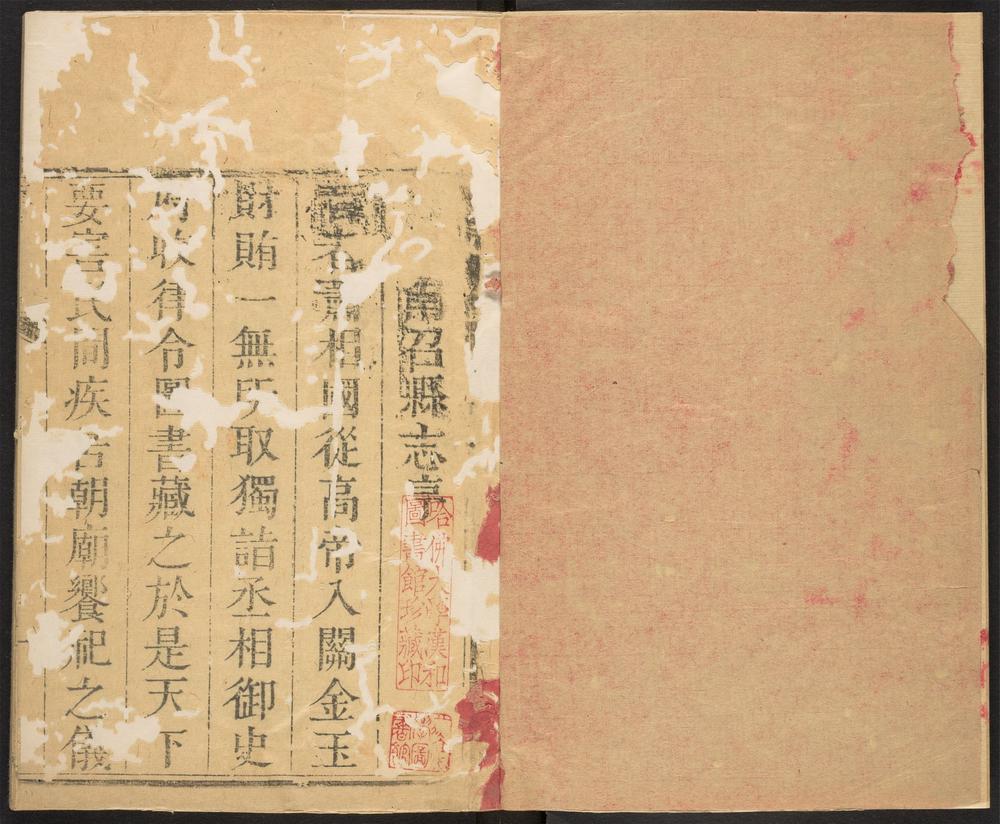 南召縣志序
哈佛大學漢和
圖書館珍藏印
相國從高帝入關金玉
財賄一無所取獨詣丞相御史
府收律令圖書藏之於是天下
要害民間疾苦朝廟饗祀之儀